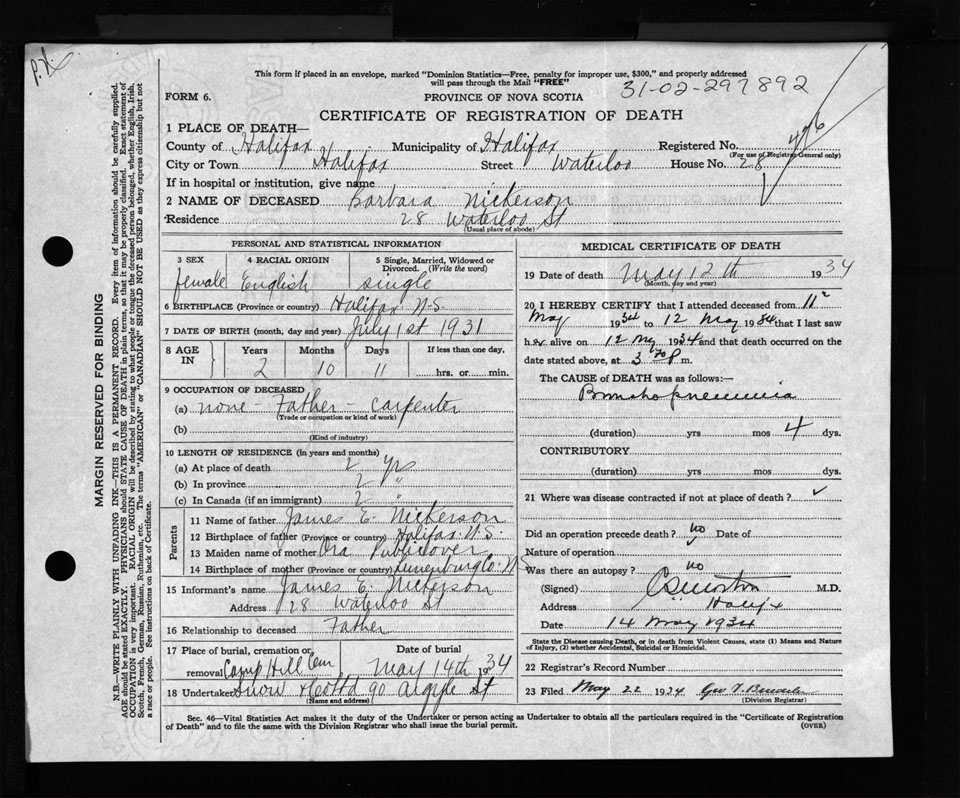 P.N.
This form if placed in an envelope, marked "Dominion Statistics—Free, penalty for improper use, $300," and properly addressed
will pass through the Mail "FREE"
31-02-297892
FORM 6.
PROVINCE OF NOVA SCOTIA
CERTIFICATE OF REGISTRATION OF DEATH
1 PLACE OF DEATH—
County of Halifax Municipality of Halifax Registered No. 496
(For use of Registrar General only)
City or Town Halifax Street Waterloo House No. 28
If in hospital or institution, give name
2 NAME OF DECEASED Barbara Nickerson
Residence 28 Waterloo St
(Usual place of abode)
PERSONAL AND STATISTICAL INFORMATION
3 SEX 4 RACIAL ORIGIN 5 Single, Married, Widowed or Divorced. (Write the word)
female English single
6 BIRTHPLACE (Province or country) Halifax N.S.
7 DATE OF BIRTH (month, day and year) July 1st 1931
8 AGE IN Years Months Days If less than one day,
2 10 11 hrs. or min.
9 OCCUPATION OF DECEASED
(a) none - Father - carpenter
(Trade or occupation or kind of work)
(b)
(Kind of industry)
10 LENGTH OF RESIDENCE (In years and months)
(a) At place of death 2 yrs
(b) In province 2 "
(c) In Canada (if an immigrant) 2 "
Parents
11 Name of father James E. Nickerson
12 Birthplace of father (Province or country) Halifax N.S.
13 Maiden name of mother Ora Publicover
14 Birthplace of mother (Province or country) Lunenburg Co. N.S
15 Informant's name James E. Nickerson
Address 28 Waterloo St
16 Relationship to deceased Father
17 Place of burial, cremation or removal Date of burial
Camp Hill Cem May 14th 1934
18 Undertaker Snow & Co Ltd 90 Argyle St
(Name and address)
MEDICAL CERTIFICATE OF DEATH
19 Date of death May 12th 1934
(Month, day and year)
20 I HEREBY CERTIFY that I attended deceased from 11
May 1934 to 12 May 1934 that I last saw
her alive on 12 My 1934 and that death occurred on the
date stated above, at 3 P m.
The CAUSE of DEATH was as follows:—
Bronchopneumonia
(duration) yrs mos 4 dys.
CONTRIBUTORY
(duration) yrs mos dys.
21 Where was disease contracted if not at place of death?
Did an operation precede death? no Date of
Nature of operation
Was there an autopsy? no
(Signed) M.D.
Address Halifx
Date 14 May 1934
State the Disease causing Death, or in death from Violent Causes, state (1) Means and Nature
of Injury, (2) whether Accidental, Suicidal or Homicidal.
22 Registrar's Record Number
23 Filed May 22 1934 Geo
(Division Registrar)
Sec. 46—Vital Statistics Act makes it the duty of the Undertaker or person acting as Undertaker to obtain all the particulars required in the "Certificate of Registration
of Death" and to file the same with the Division Registrar who shall issue the burial permit. (OVER)
MARGIN RESERVED FOR BINDING
N.B.—WRITE PLAINLY WITH UNFADING INK—THIS IS A PERMANENT RECORD. Every item of information should be carefully supplied.
AGE should be stated EXACTLY. PHYSICIANS should STATE CAUSE OF DEATH in plain terms, so that it may be properly classified. Exact statement of
OCCUPATION is very important. RACIAL ORIGIN will be described by stating to what people or tongue the deceased person belonged, whether English, Irish,
Scotch, French, German, Russian, Ruthenian, etc. The terms "AMERICAN" or "CANADIAN" SHOULD NOT BE USED as they express citizenship but not
a race or people. See instructions on back of Certificate.